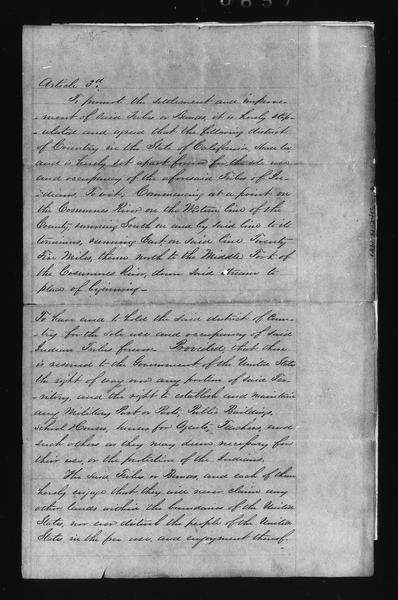 Article 3d.
To promote the settlement and improve-
ment of said Tribes or Bands, it is hereby stip-
ulated and agreed that the following district
of Country in the State of California, shall be
and is hereby set apart forever for the sole use
and occupancy of the aforesaid Tribes of In-
dians, To wit, Commencing at a point on
the Cosumnes River on the Western line of the
County, running South on and by said line to its
terminus, running East on said line Twenty
Five Miles, thence north to the Middle Fork of
the Cosumnes River, down said Stream to
place of beginning—
To have and to hold the said district of Coun-
try for the sole use and occupancy of said
Indian Tribes forever. Provided, that there
is reserved to the Government of the United States
the right of way over any portion of said Ter-
ritory, and the right to establish and maintain
any Military Post or Posts, Public Buildings,
School Houses, houses for Agents, Teachers, and
such others as they may deem necessary for
their use, or the protection of the Indians.
The said Tribes or Bands and each of them
hereby engage that they will never claim any
other lands within the boundaries of the United
States, nor ever disturb the people of the United
States, in the free use, and enjoyment thereof.